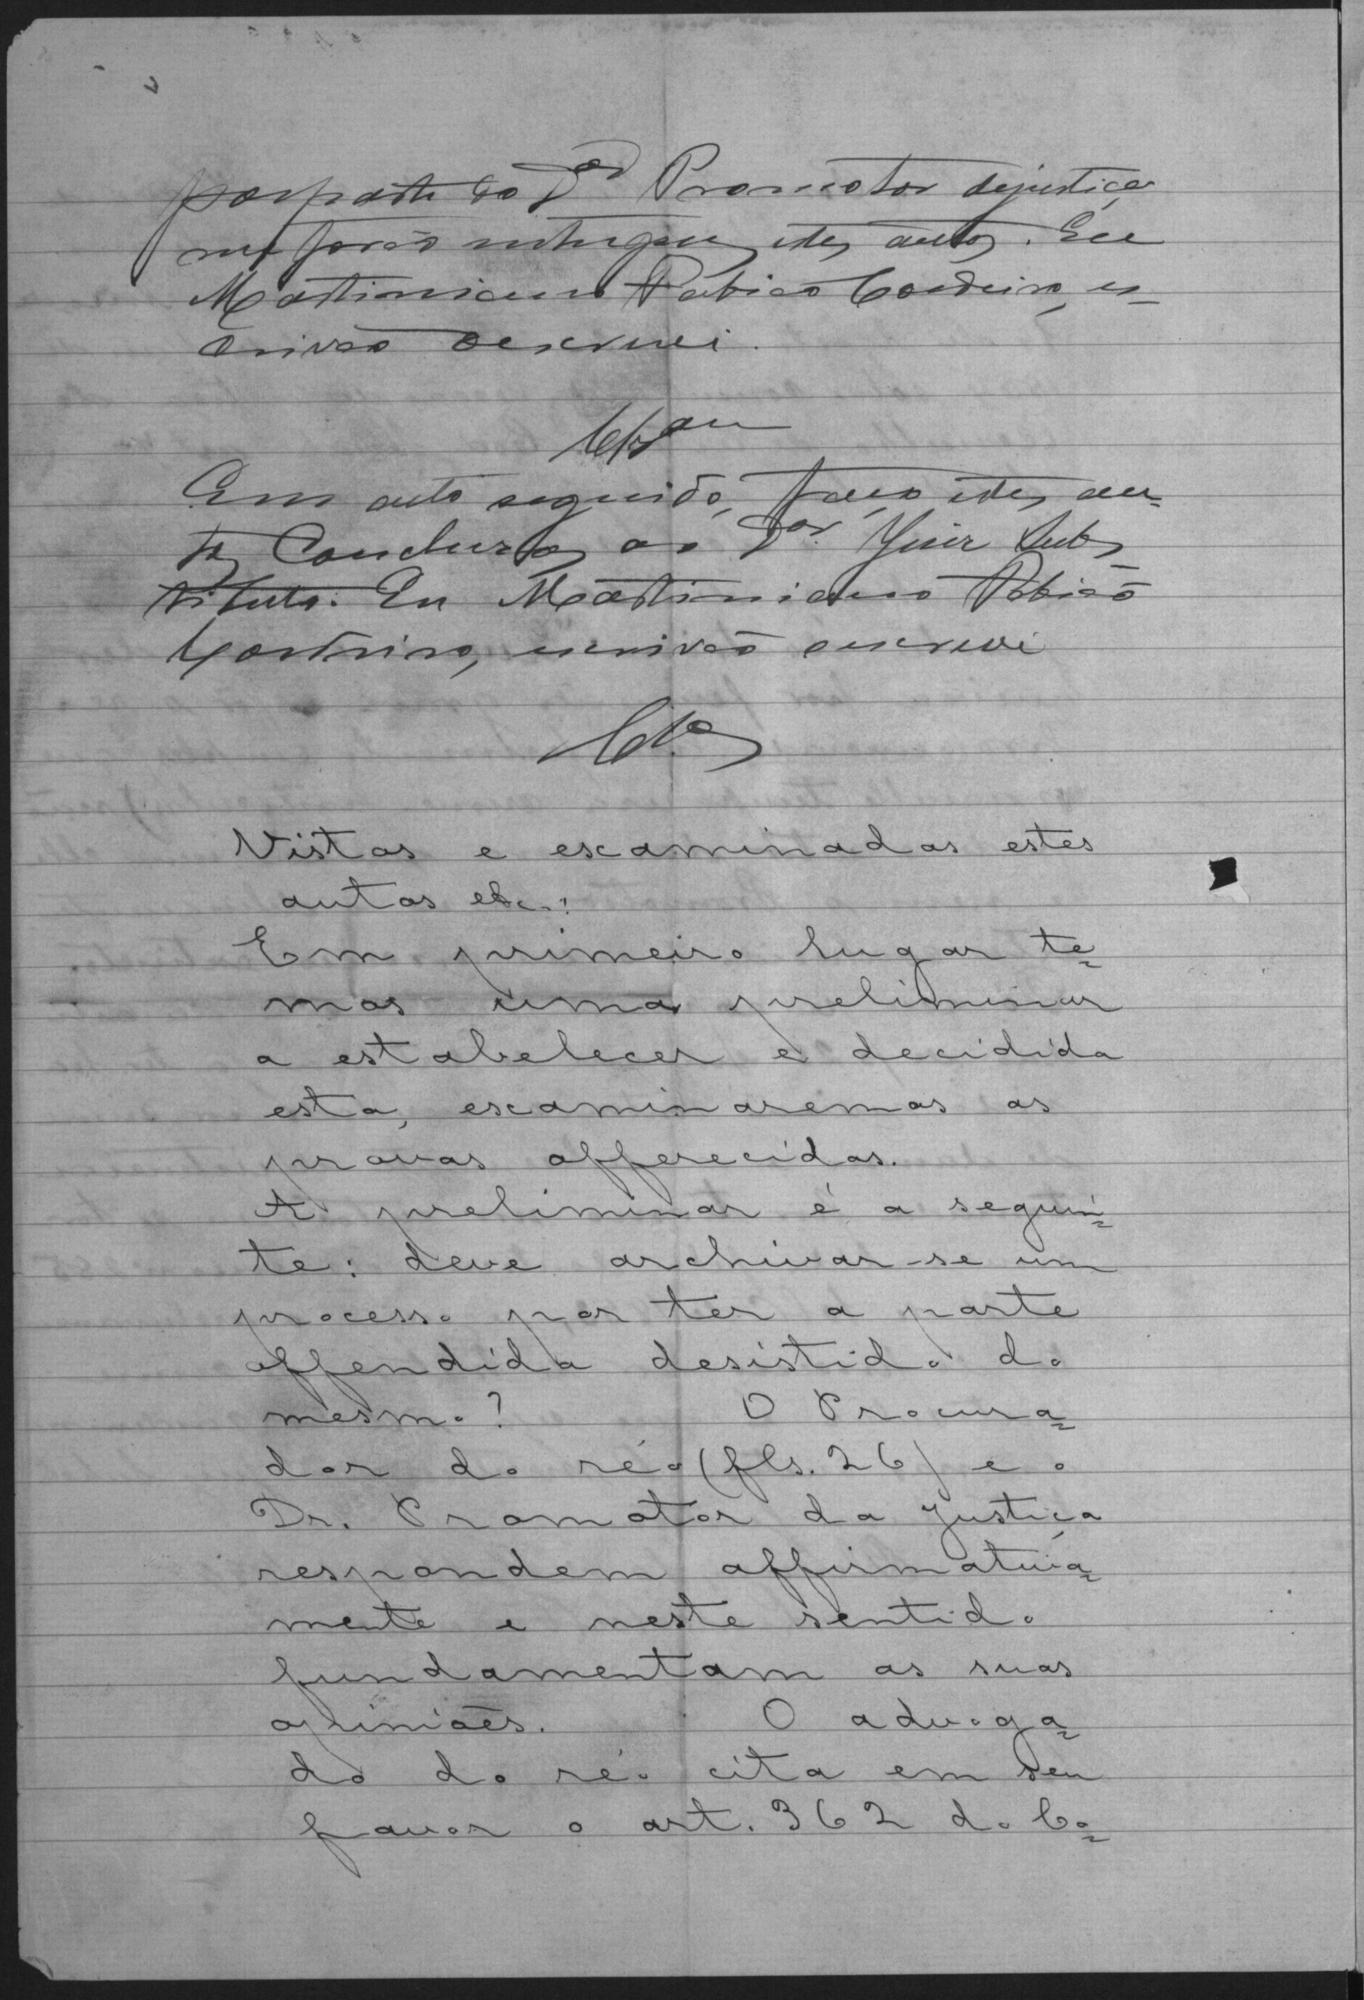 por parte do Dor Promotor dejustiça
me forão entregues estes autos. Eu
Martiniano Rabico Cordeiro, es-
crivão oescrevi.
Clsam
Em acto seguido, faço estes au-
tos Conclusos ao Dor. Juiz Subs
tituto. Eu Martiniano Rabico
Cordeiro, escrivão oescrevi
Clos
Vistos e examinados estes
autos etc.:
Em primeiro lugar te-
mos uma preliminar
a estabelecer e decidida
esta, examinaremos as
provas offerecidas.
A preliminar é a seguin-
te: deve archivar-se um
processo por ter a parte
offendida desistido do
mesmo? O Procura-
dor do réo (fls. 26) e o
Dr. Promotor da Justiça
respondem affirmativa-
mente e neste sentido
fundamentam as suas
opiniões. O advoga-
do do réo cita em seu
favor o art. 362 do Co-